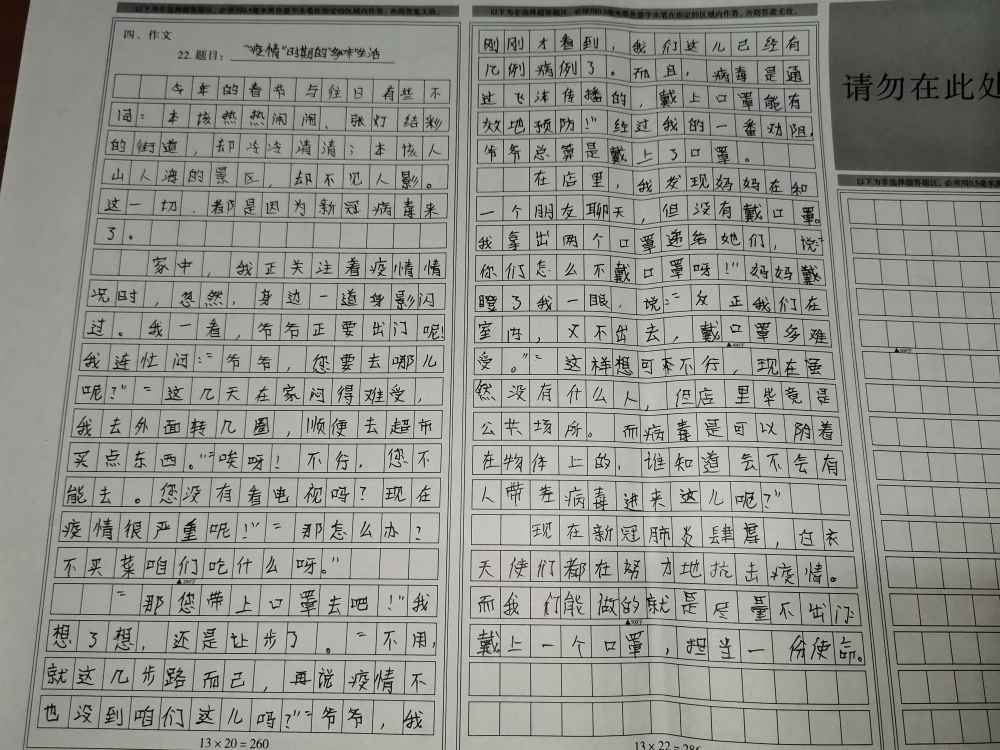 以下为非选择题答题区，必须用0.5毫米黑色墨水签字笔在指定的区域内作答，否则答案无效。
四、作文
22. 题目：“疫情”时期的生活
今年的春节与往日有些不
同：本该热热闹闹、张灯结彩
的街道，却冷冷清清；本该人
山人海的景区，却不见人影。
这一切，都是因为新冠病毒来
了。
家中，我正关注着疫情情
况时，忽然，身边一道身影闪
过。我一看，爷爷正要出门呢！
我连忙问：“爷爷，您要去哪儿
呢？”“这几天在家闷得难受，
我去外面转几圈，顺便去超市
买点东西。”“唉呀！不行，您不
能去。您没有看电视吗？现在
疫情很严重呢！”“那怎么办？
不买菜咱们吃什么呀。”
“那您带上口罩去吧！”我
想了想，还是让步了。“不用，
就这几步路而已，再说疫情不
也没到咱们这儿吗？”“爷爷，我
13×20=260
刚刚才看到，我们这儿已经有
几例病例了。而且，病毒是通
过飞沫传播的，戴上口罩能有
效地预防！”经过我的一番劝阻，
爷爷总算是戴上了口罩。
在店里，我发现妈妈在和
一个朋友聊天，但没有戴口罩。
我拿出两个口罩递给她们，说：“
你们怎么不戴口罩呀！”妈妈戴
瞪了我一眼，说：“反正我们在
室内，又不出去，戴口罩多难
受。”“这样想可不行，现在虽
然没有什么人，但店里毕竟是
公共场所。而病毒是可以附着
在物体上的，谁知道会不会有
人带着病毒进来这儿呢？”
现在新冠肺炎肆虐，白衣
天使们都在努力地抗击疫情。
而我们能做的就是尽量不出门，
戴上一个口罩，担当一份使命。
13×22=286
请勿在此处
以下为非选择题答题区，必须用0.5毫米